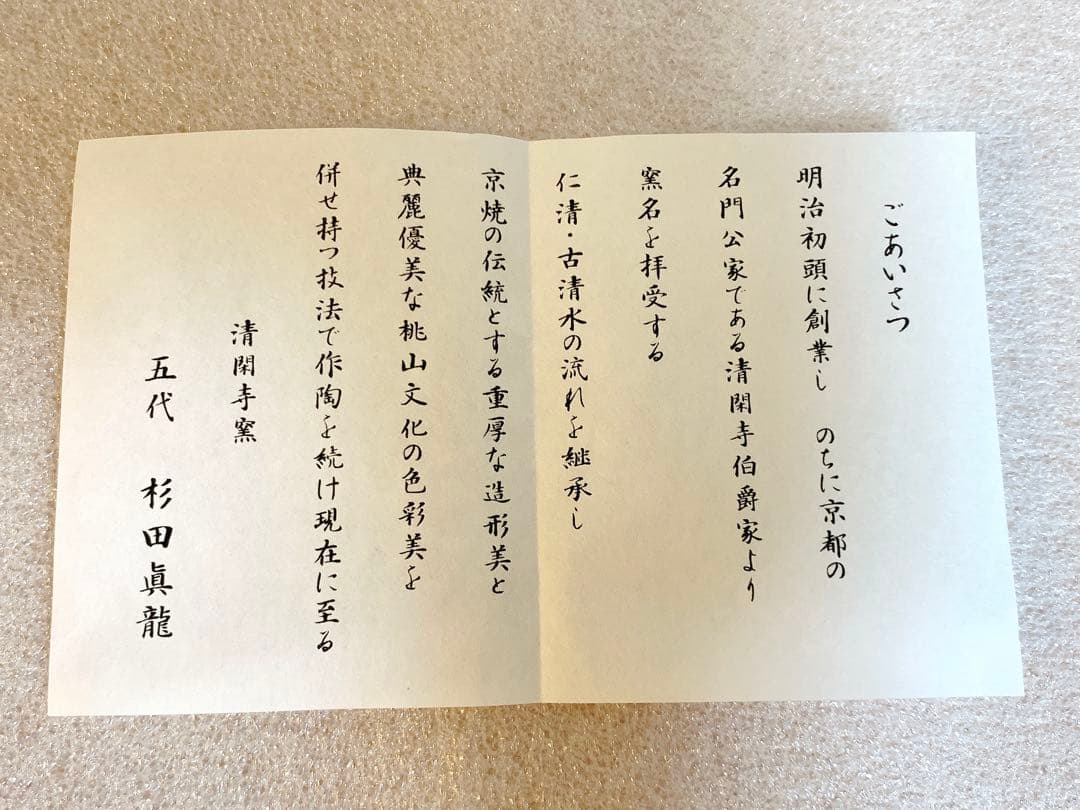 ごあいさつ
明治初頭に創業し　のちに京都の
名門公家である清閑寺伯爵家より
窯名を拝受する
仁清・古清水の流れを継承し
京焼の伝統とする重厚な造形美と
典麗優美な桃山文化の色彩美を
併せ持つ技法で作陶を続け現在に至る
清閑寺窯
五代　杉田眞龍